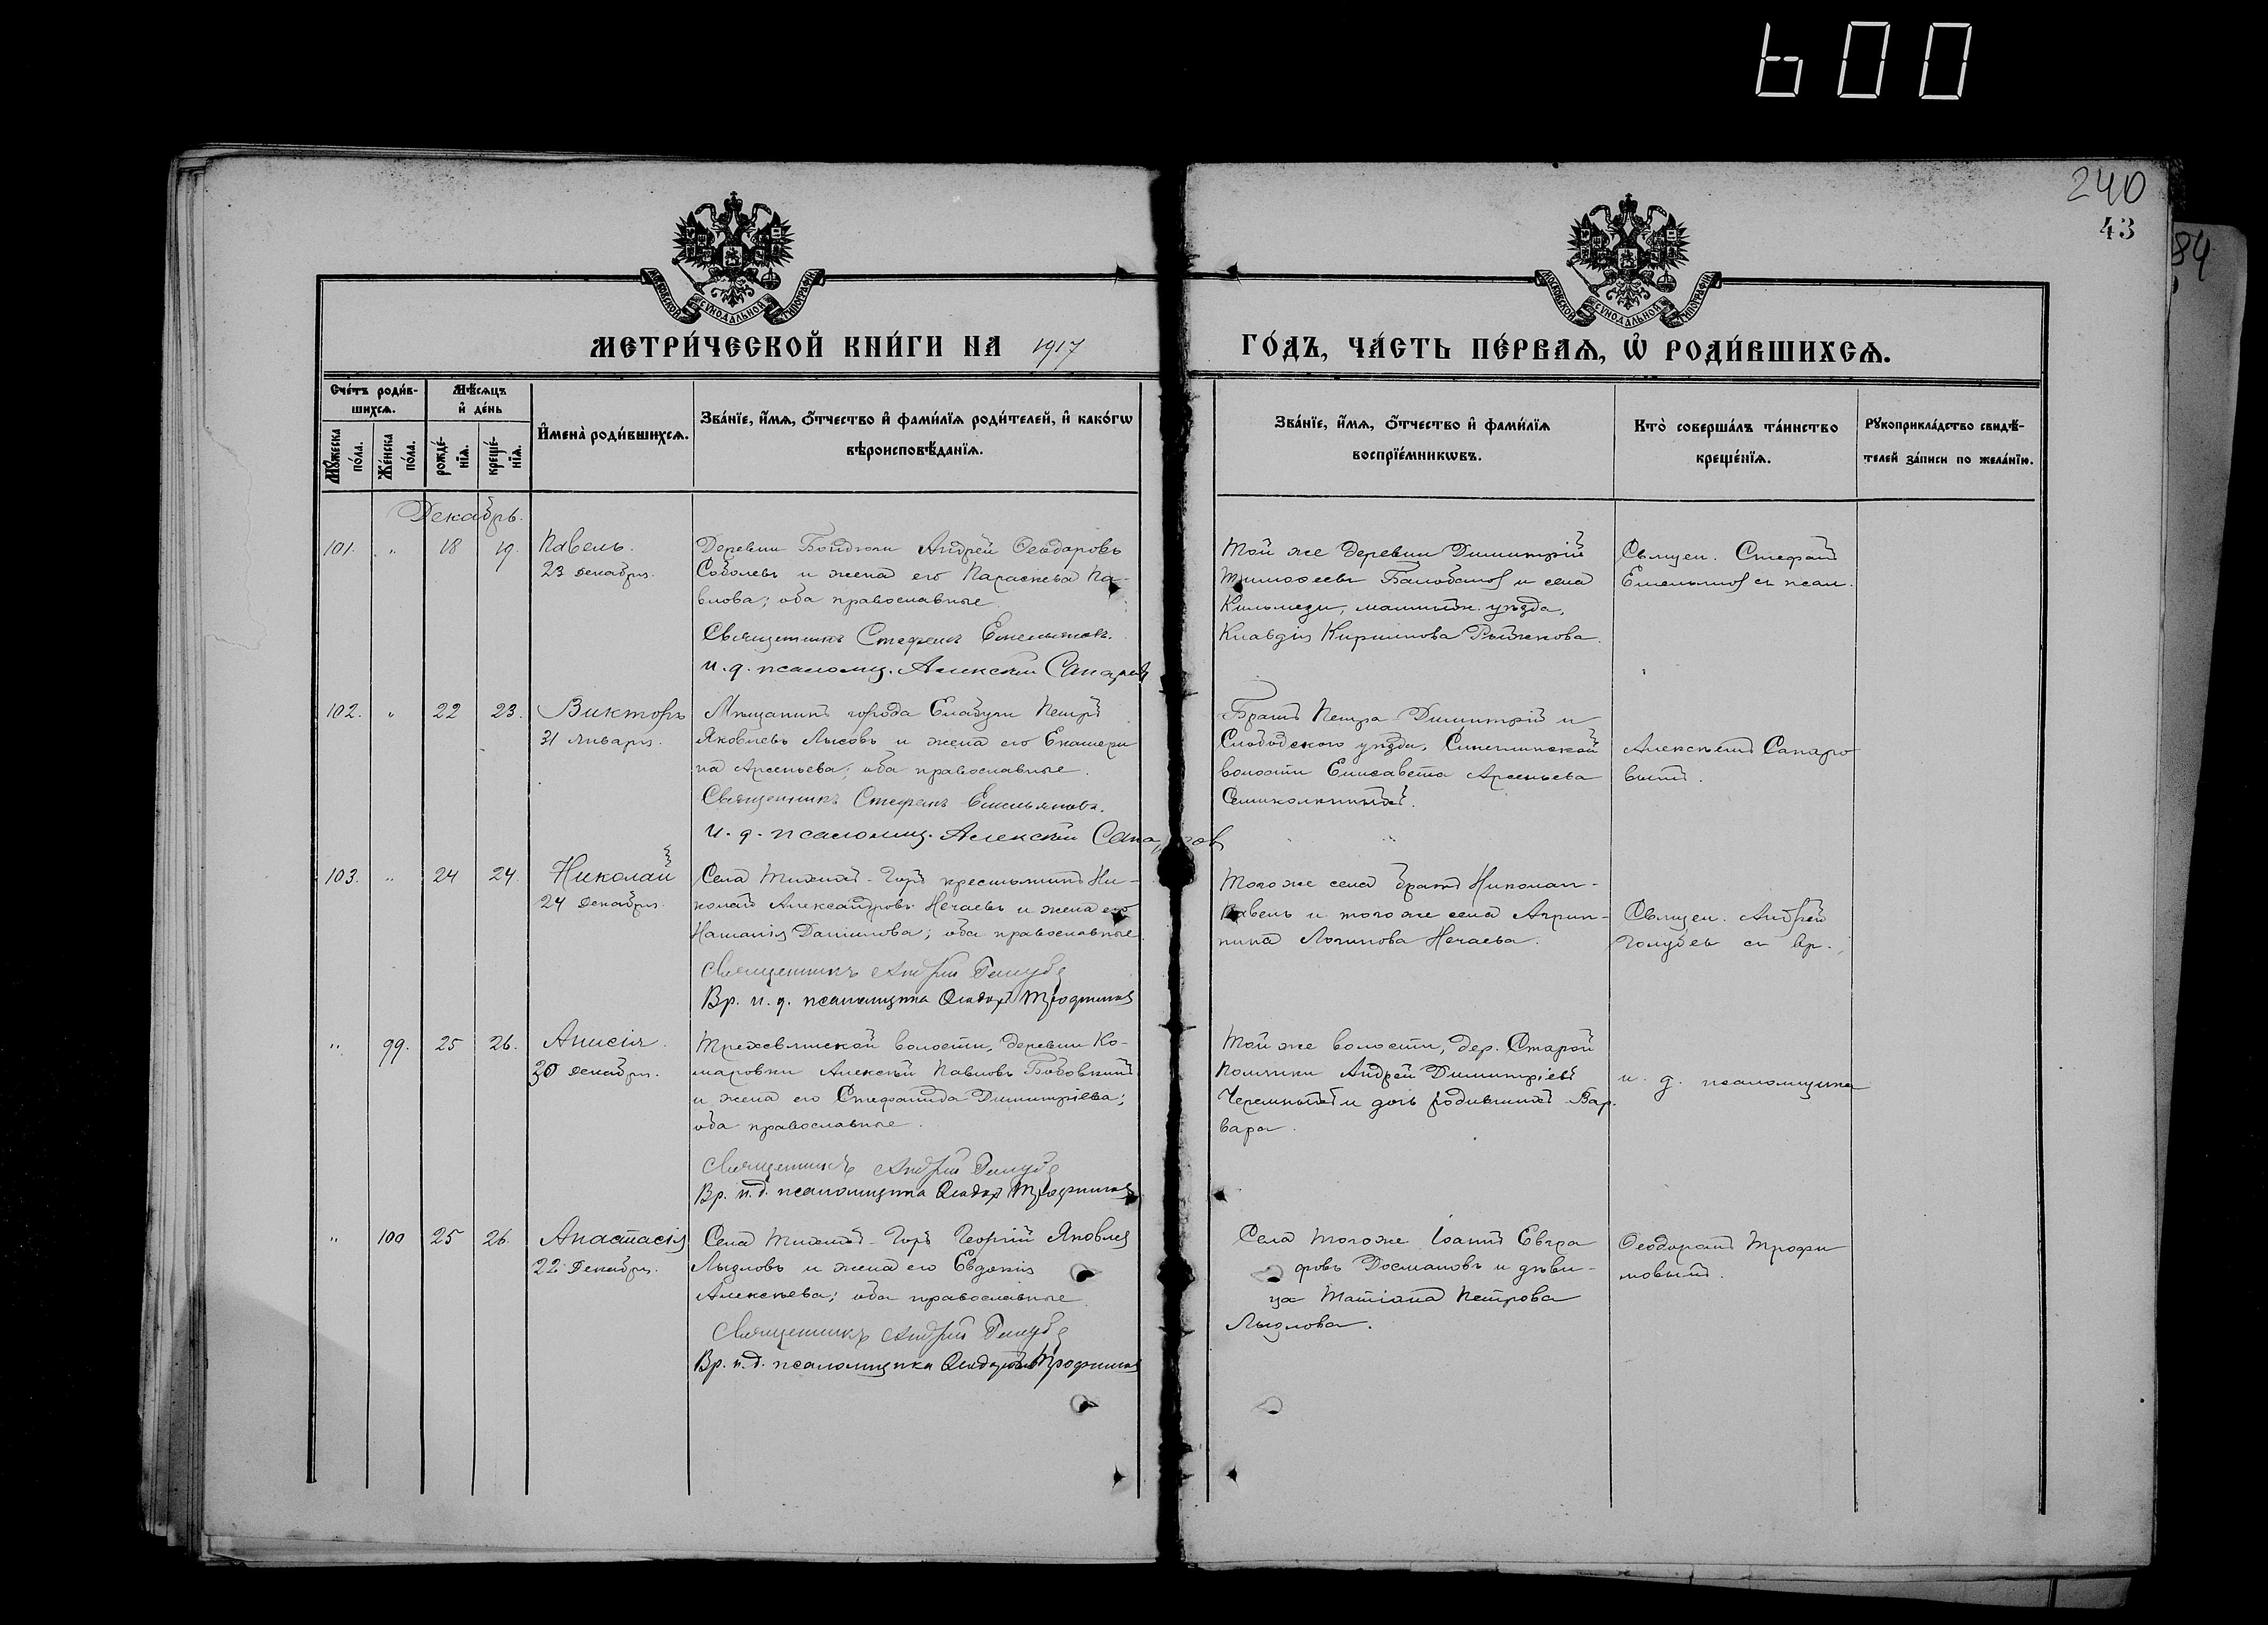 600
240
43
84
МОСКОВСКОЙ СѴНОДАЛЬНОЙ ТИПОГРАФІИ
МОСКОВСКОЙ СѴНОДАЛЬНОЙ ТИПОГРАФІИ
МЕТРИ́ЧЕСКОЙ КНИ́ГИ НА 1917
ГО́ДЪ, ЧА́СТЬ ПЕ́РВАѦ, Ѡ҆ РОДИ́ВШИХСѦ.
Сче́тъ роди́в-
шихсѧ.
Мѣ́сѧцъ
и҆ де́нь
Мꙋ́жеска
по́ла.
Же́нска
по́ла.
рожде́-
нїѧ.
креще́-
нїѧ.
И҆мена̀ роди́вшихсѧ.
Зва́нїе, и҆́мѧ, ѻ҆́тчество и҆ фами́лїѧ роди́телей, и҆ како́гѡ
вѣроисповѣ́данїѧ.
Зва́нїе, и҆́мѧ, ѻ҆́тчество и҆ фами́лїѧ
воспрїе́мникѡвъ.
Кто̀ соверша́лъ та́инство
креще́нїѧ.
Рꙋкоприкла́дство свидѣ́-
телей за́писи по жела́нїю.
Декабрь.
101. " 18 19. Павелъ.
23 декабря.
Деревни Бондюги Андрей Ѳеодоровъ
Соболевъ и жена его Параскева Па-
влова; оба православные
Священникъ Стефанъ Емельяновъ.
и. д. псаломщ. Алексѣй
Той же деревни Димитрій
Тимоѳеевъ и села
Кильмези, малмыж. уѣзда,
Клавдія Кириллова Рыжкова.
Священ. Стефан
Емельянов съ псал.
102. " 22 23. Викторъ
31 января.
Мѣщанинъ города Елабуги Петръ
Яковлевъ Лысовъ и жена его Екатери
на Арсеньева; оба православные.
Священникъ Стефанъ Емельяновъ.
и. д. псаломщ. Алексѣй
Братъ Петра Димитрій и
Слободского уѣзда,
волости Елисавета Арсеньева
Алексѣемъ Сапаро
вымъ.
103. " 24 24. Николай
24 декабря.
Села Тихихъ-Горъ крестьянинъ Ни-
колай Александровъ Нечаевъ и жена его
Наталія Данилова; оба православные
Священникъ Андрей Голубе
Вр. и. д. псаломщика Ѳеодоръ Трофимов
Того же села братъ Николая-
Павелъ и того же села Агрип-
пина Логинова Нечаева.
Священ. Андрей
Голубев съ вр.
" 99. 25 26. Анисія.
30 декабря.
Трехсвятской волости, деревни Ко-
маровки Алексѣй Павловъ
и жена его Стефанида Димитріева;
оба православные.
Священникъ Андрей Голубе
Вр. и. д. псаломщика Ѳеодор Трофимов
Той же волости, дер. Старой
Андрей Димитріевъ
и дочь родившихъ Вар-
вара.
и. д. псаломщика
" 100 25 26. Анастасія
22 декабря.
Села Тихихъ-Горъ Георгій Яковлев
Лызловъ и жена его Евдокія
Алексѣева; оба православные
Священникъ Андрей Голубе
Вр. и. д. псаломщика Ѳеодоръ Трофимов
Села того же Іоаннъ Евгра
фовъ Досмановъ и дѣви-
ца Татіана Петрова
Лызлова.
Ѳеодоромъ Трофи
мовымъ.